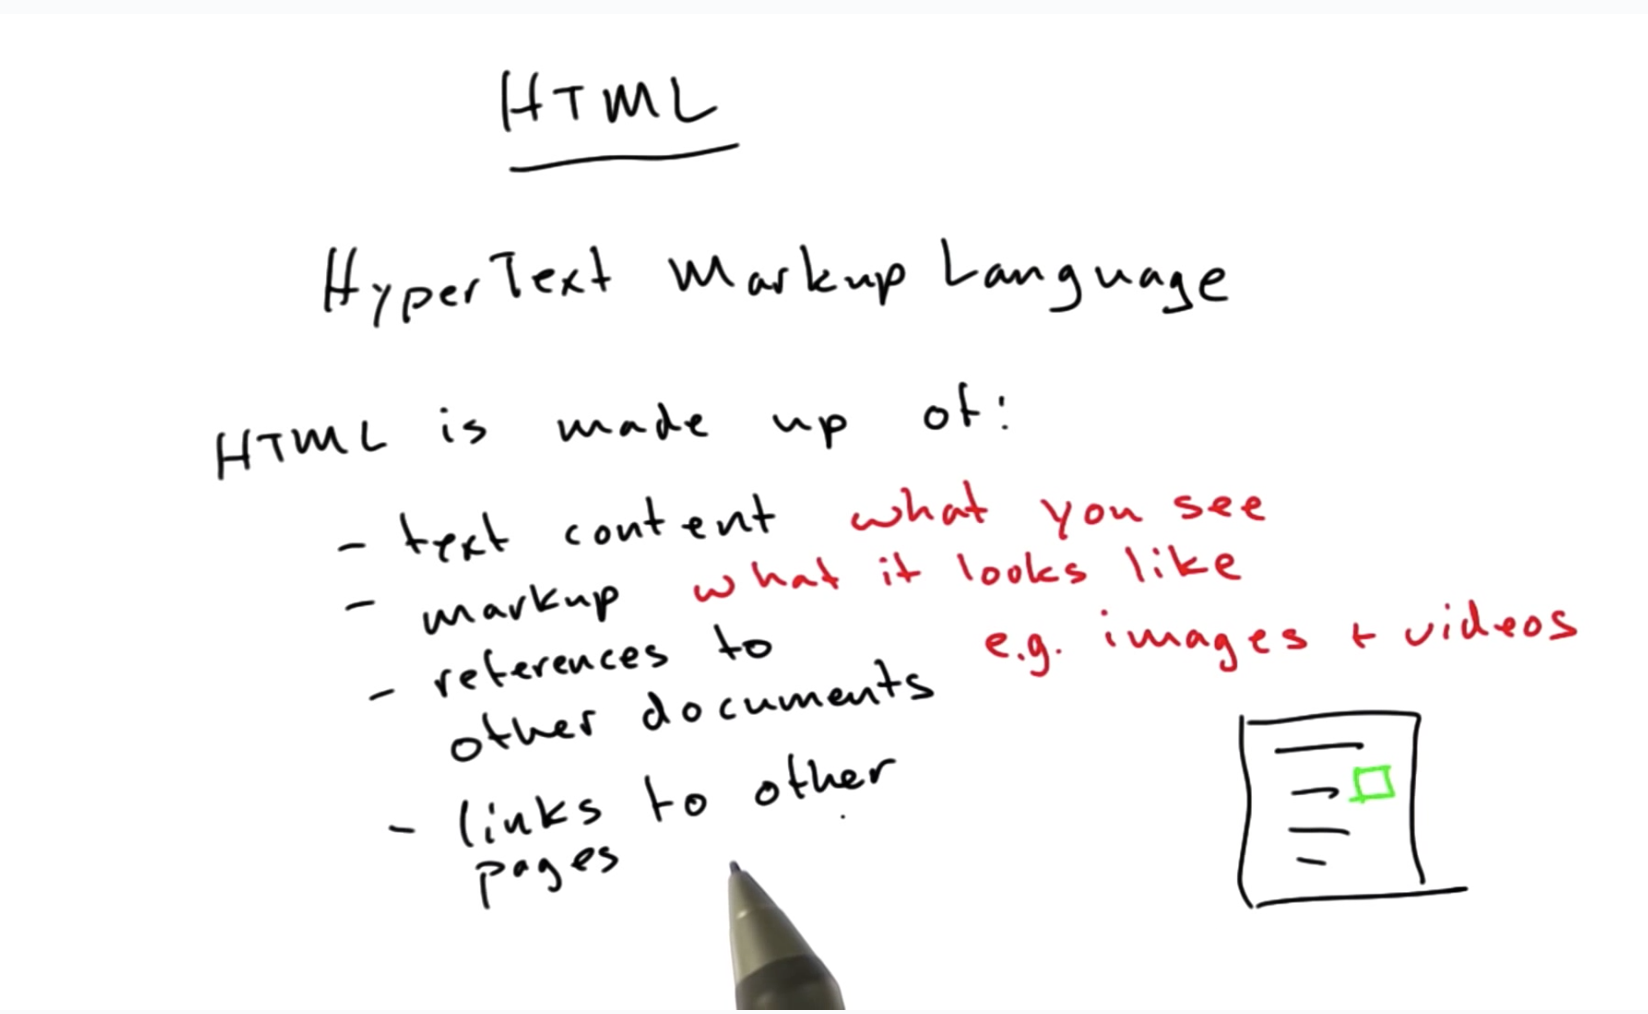 HTML
HyperText Markup Language
HTML is made up of:
- text content what you see
- markup what it looks like
- references to e.g. images + videos
other documents
- links to other
pages